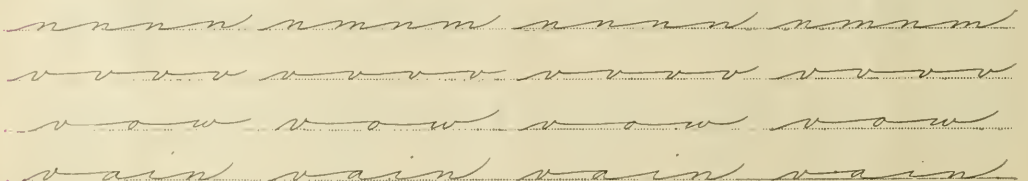 nnnn nmnm nnnn nmnm
vvvv vvvv vvvv vvvv
vow vow vow vow
vain vain vain vain